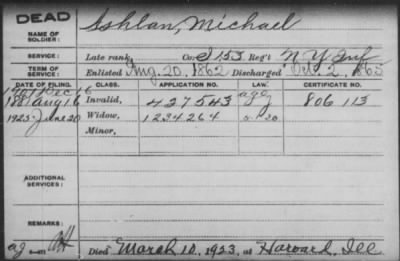 DEAD
NAME OF SOLDIER: Ashlan, Michael
SERVICE: Late rank, Co. I 153 Reg't N.Y. Inf
TERM OF SERVICE: Enlisted Aug. 20, 1862 Discharged Oct. 2, 1865
DATE OF FILING. CLASS. APPLICATION NO. LAW. CERTIFICATE NO.
Dec 16
1881 Aug 16 Invalid, 427543 806113
1923 June 20 Widow, 1234264
Minor,
ADDITIONAL SERVICES:
REMARKS:
Died March 10, 1923, at Harvard, Ill